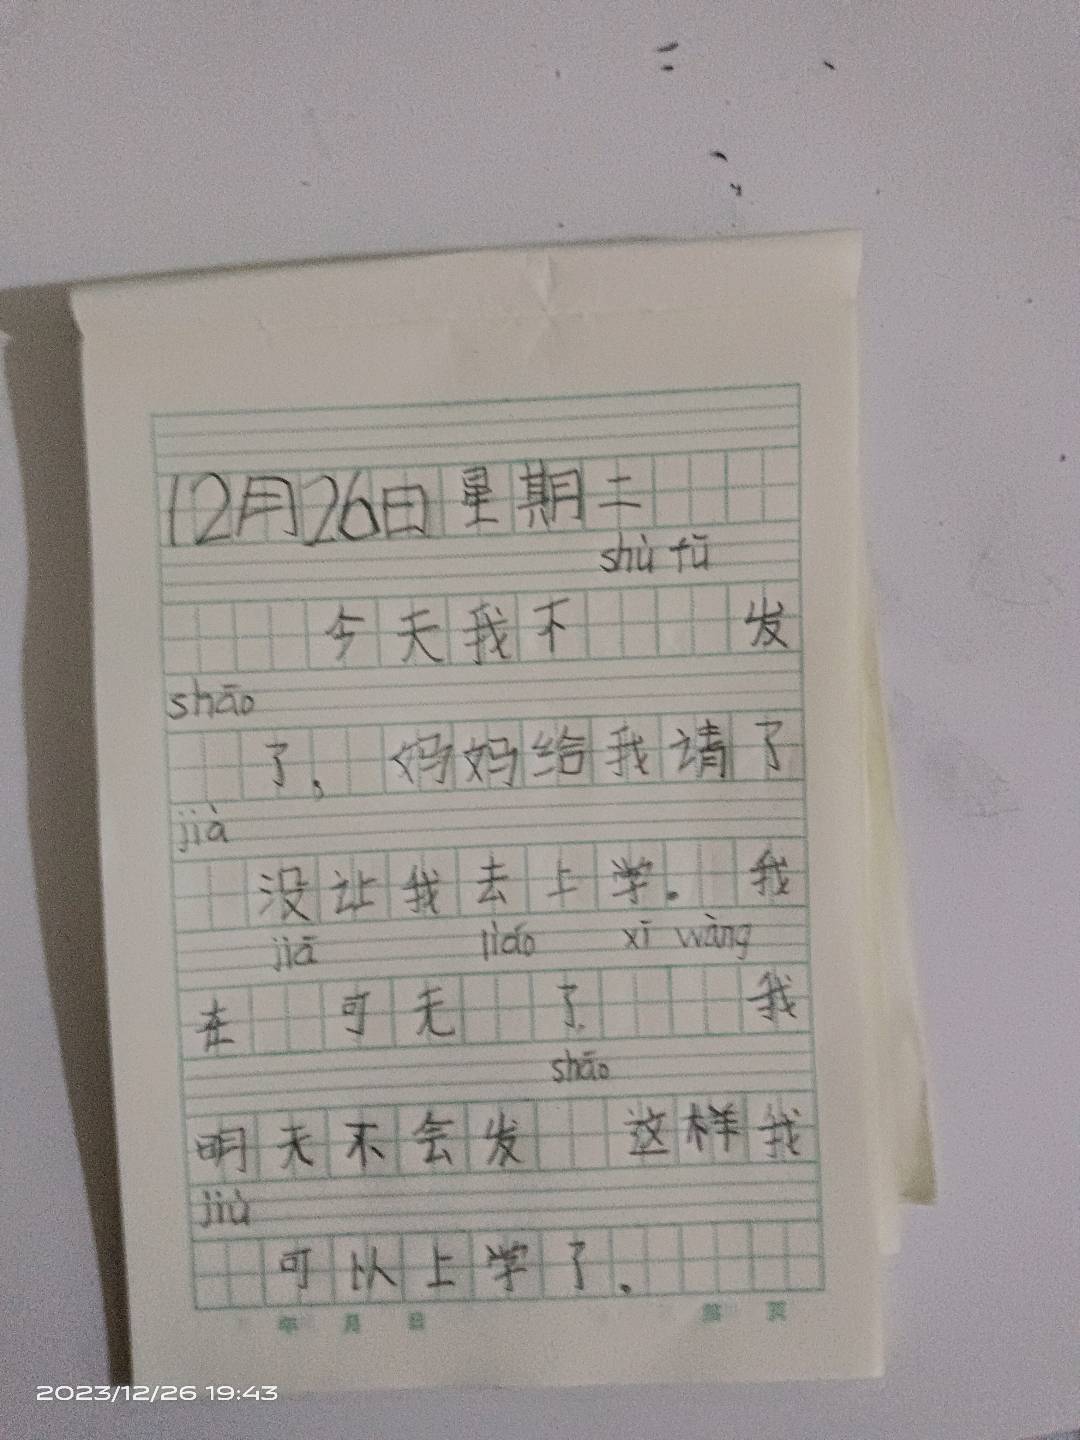 12月26日星期二
shù fū
今天我不 发
shāo
了,妈妈给我请了
jià
没让我去上学。我
jiā liáo xī wàng
在 可无 了 我
shāo
明天不会发 这样我
jiù
可以上学了。
年 月 日 第 页
2023/12/26 19:43